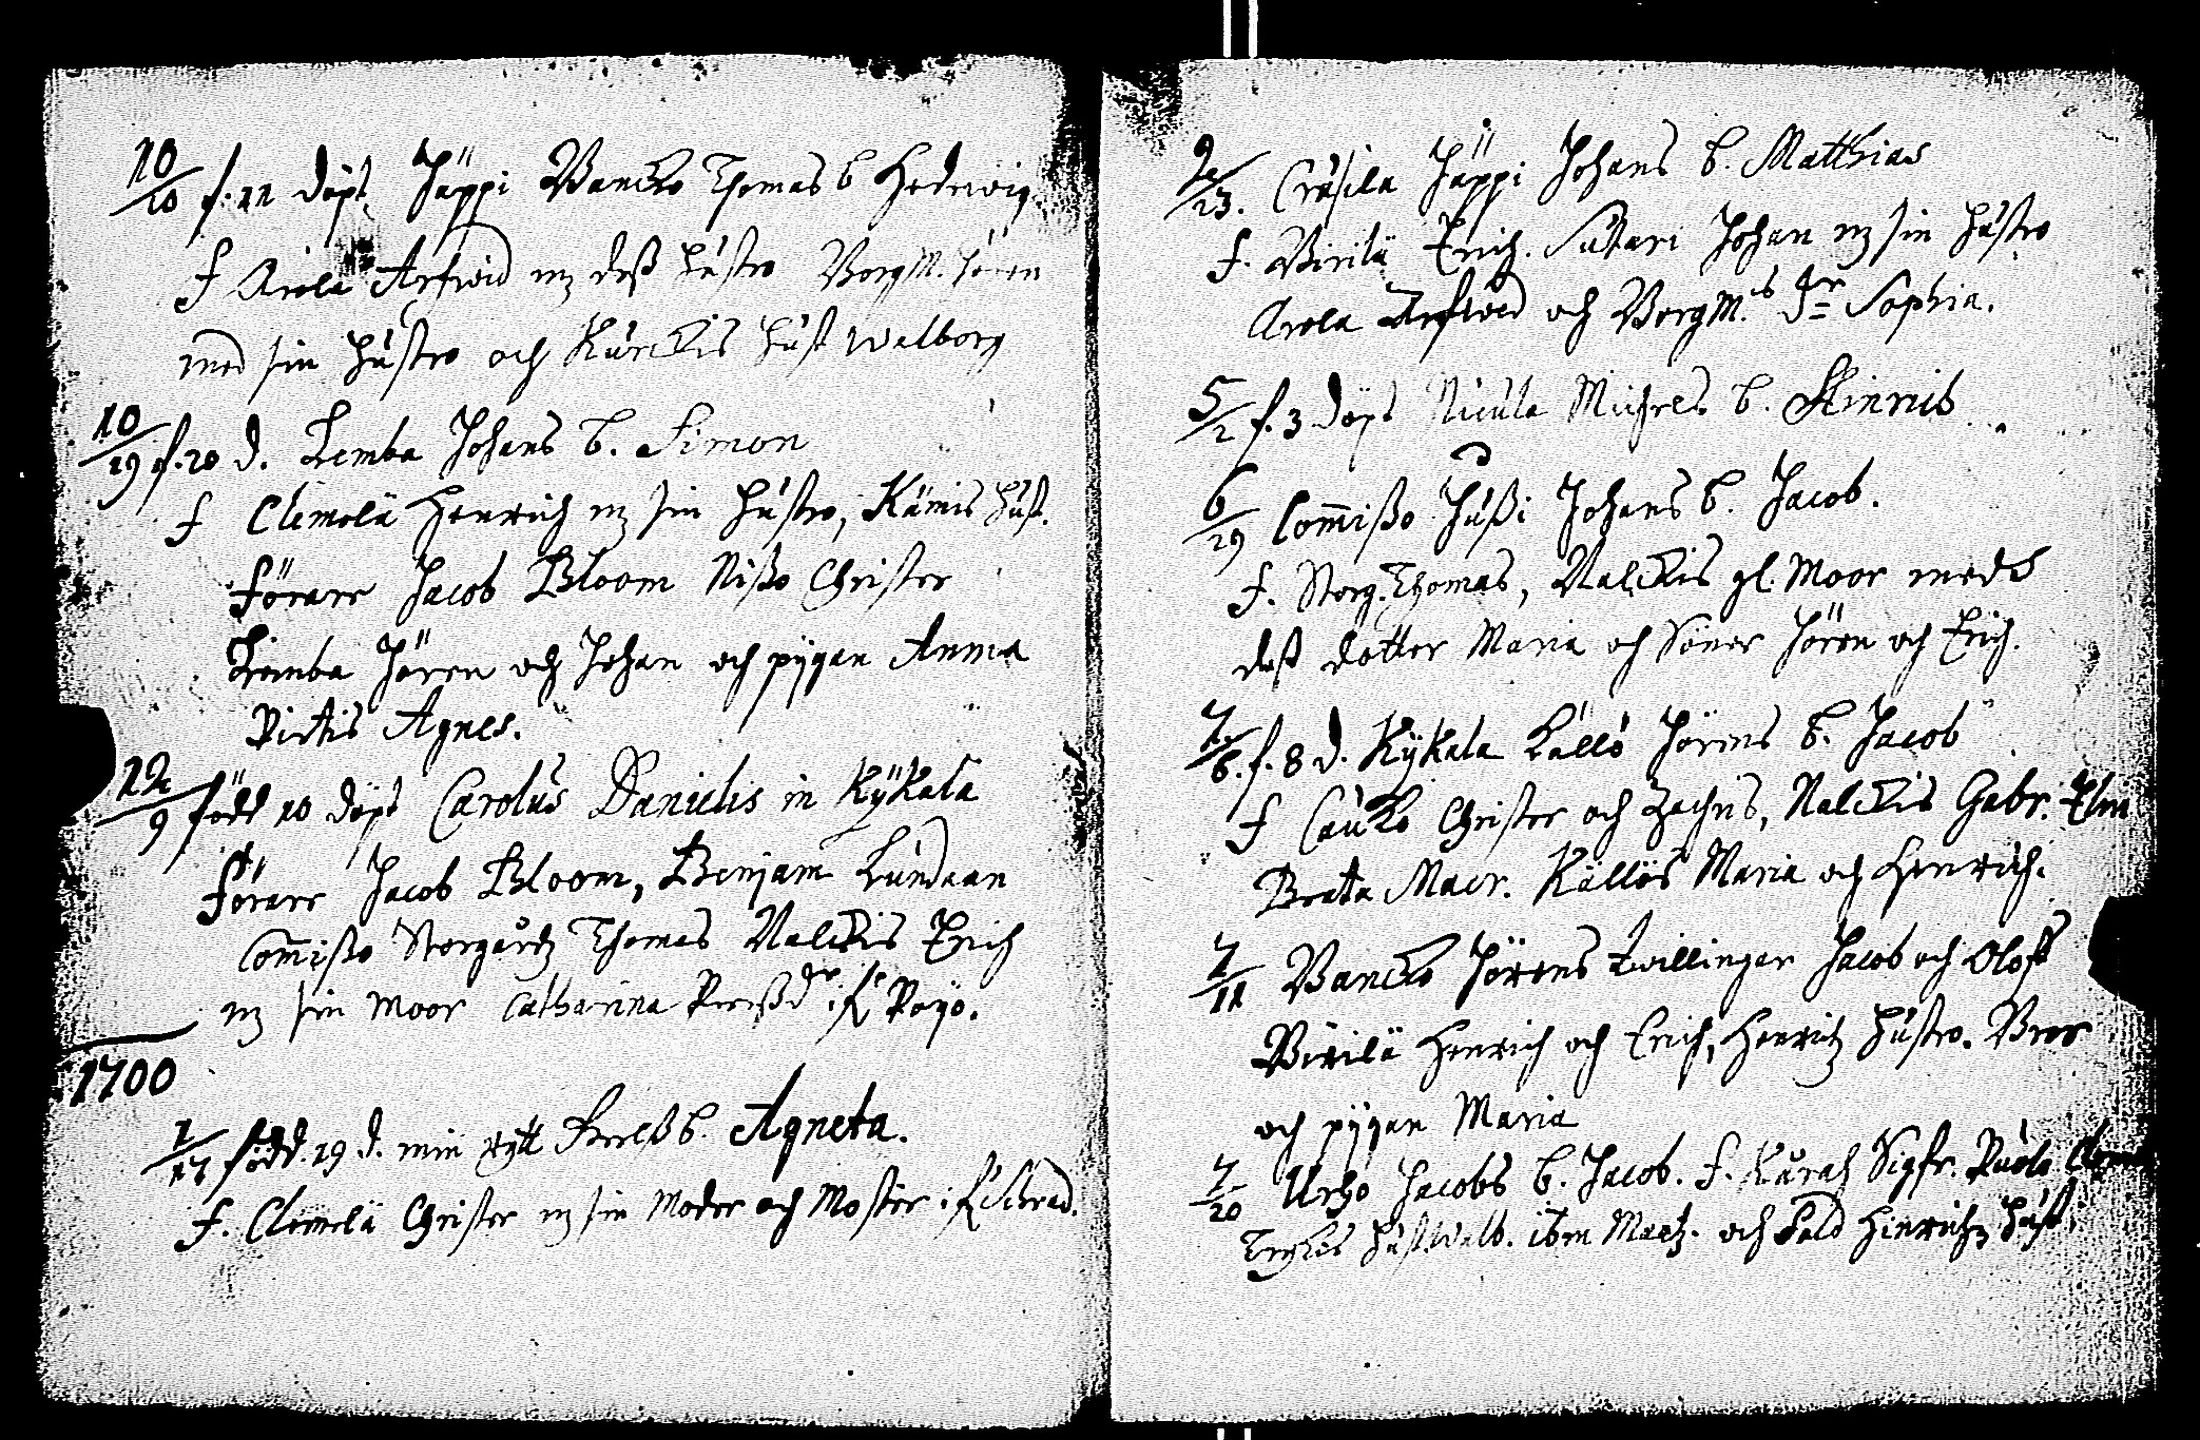 10/10 f. 11 döpt Jäppi Vancko Thomas b Hedewig
f Arola Arfwid mz dess hustro Borgm. Jören
med sin hustro och Kurckis hust Walborg
10/19 f. 20 d. Lemba Johans b. Simon
f Clemolä Henrich mz sin hustro, Kämis hust.
Förare Jacob Bloom Nisso Christer
Lemba Jören och Johan och pygan Anna
Pirtis Agnes.
12/9 född 10 döpt Carolus Danielis in Kÿkala
Förare Jacob Bloom, Benjam Lundaan
Commisso Storgårdz Thomas Nalckis Erich
mz sin Moor Catharina dr i Röyö.
1700
1/17 född. 19 d. min b. Agneta.
f. Clemelä Christer mz sin Moder och Moster i
2/23. Cräsila Jäppi Johans b. Matthias
f. Virilä Erich. Sutari Johan mz sin hustro
Arola Arfwed och Borgm.s dr Sophia.
5/2 f. 3 döpt Nicula Michels b. Hinric
6/29 Commisso Jussi Johans b. Jacob.
f. Storg. Thomas, Nalckis gl. Moor med
dess dotter Maria och Söner Jören och Erich.
7/6. f. 8 d. Kÿkala Lallo Jörens b. Jacob
f Caucko Christer och Zachris, Nalckis Gabr.
Beata Maer. Källös Maria och Henrich.
7/11 Vancko Jörens twillingar Jacob och Oloff
Virilä Henrich och Erich, Henrichz hustro. Bror
och pygan Maria
7/20 Urho Jacobs b. Jacob. f. Sigfr.
hust Walb. ibm Matz. och Hinrichz hust.